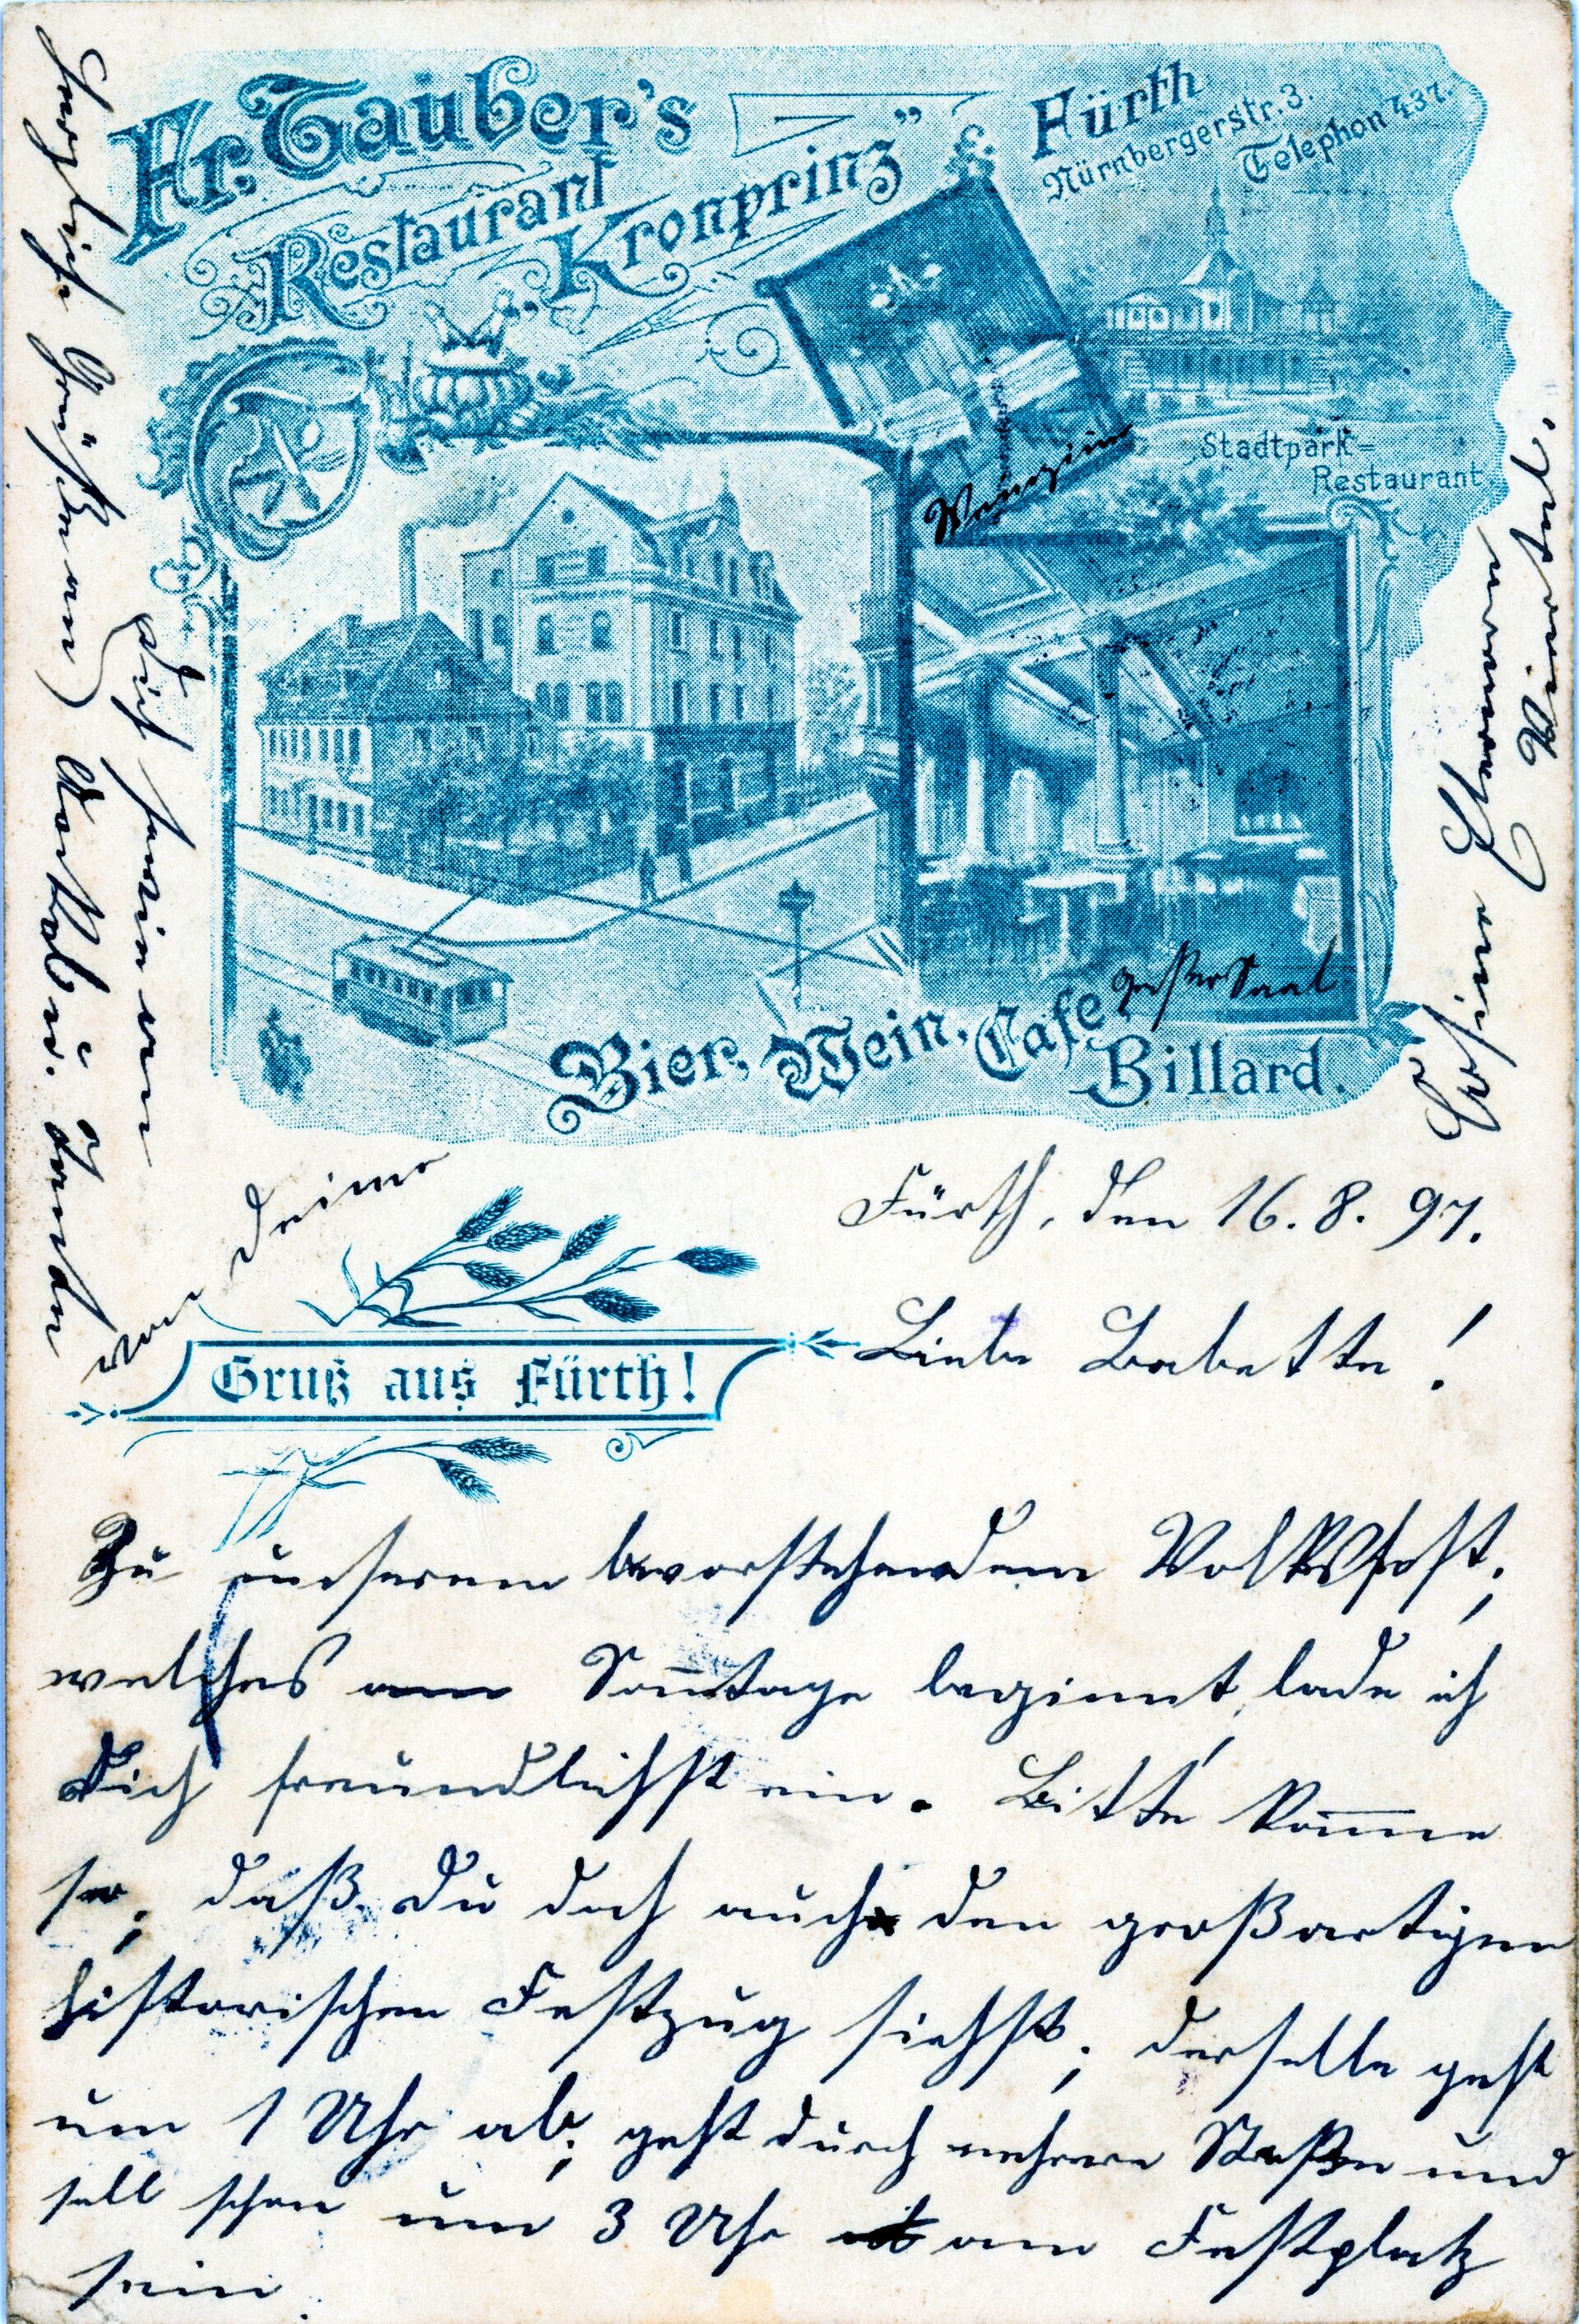 Fr. Tauber's
Restaurant
„Kronprinz”
Fürth
Nürnbergerstr. 3.
Telephon 437.
Stadtpark=
Restaurant
Weinzim
großer Saal
Bier, Wein, Cafe
Billard.
Gruß aus Fürth!
Fürth, den 16. 8. 97.
Liebe Babette!
Zu unserem bevorstehendem Volksfest,
welches am Sonntage beginnt, lade ich
Dich freundlichst ein. Bitte komme
so, daß Du doch auch den großartigen
historischen Festzug siehst, derselbe geht
um 1 Uhr ab, geht durch mehrere Straßen und
soll schon um 3 Uhr am Festplatz
sein.
Es
Dich
von Deiner
Herzliche Grüße an